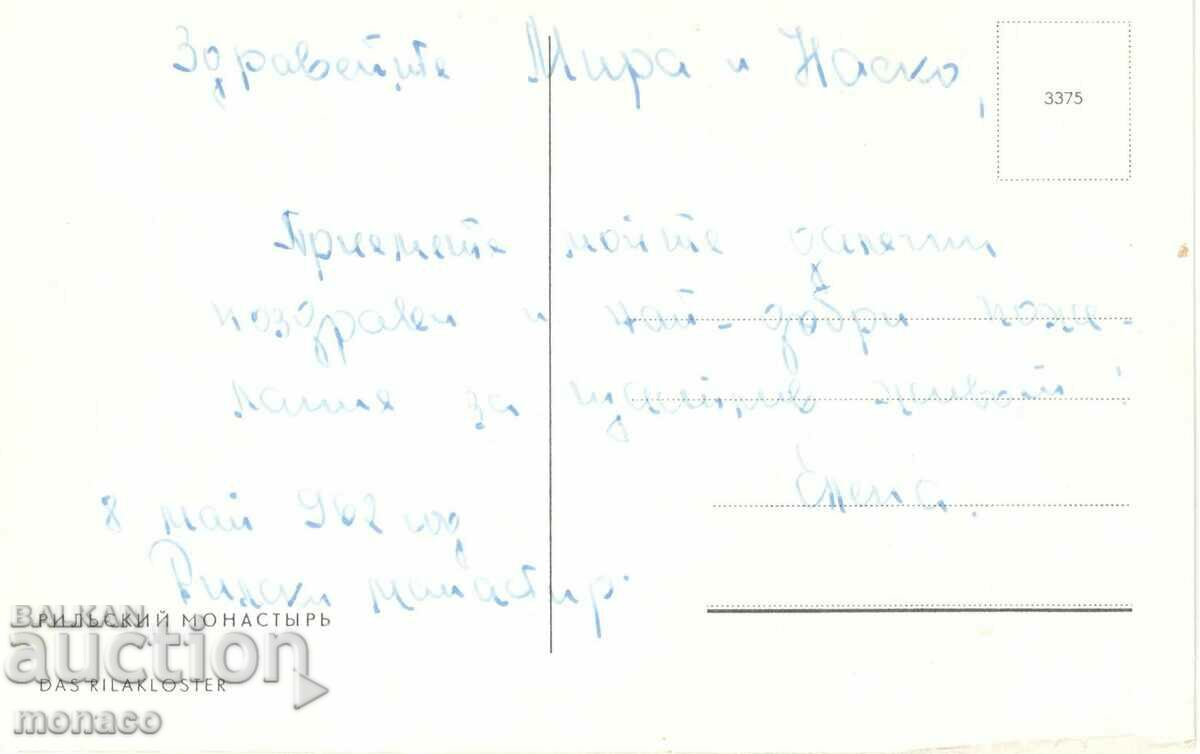 Здравейте Мира и Наско,
3375
Приемете мойте
поздрави и най-добри поже-
лания за щастлив живот!
Елена.
8 май 962 год
Рилски манастир.
РИЛЬСКИЙ МОНАСТЫРЬ
DAS RILAKLOSTER
BALKAN
auction
monaco